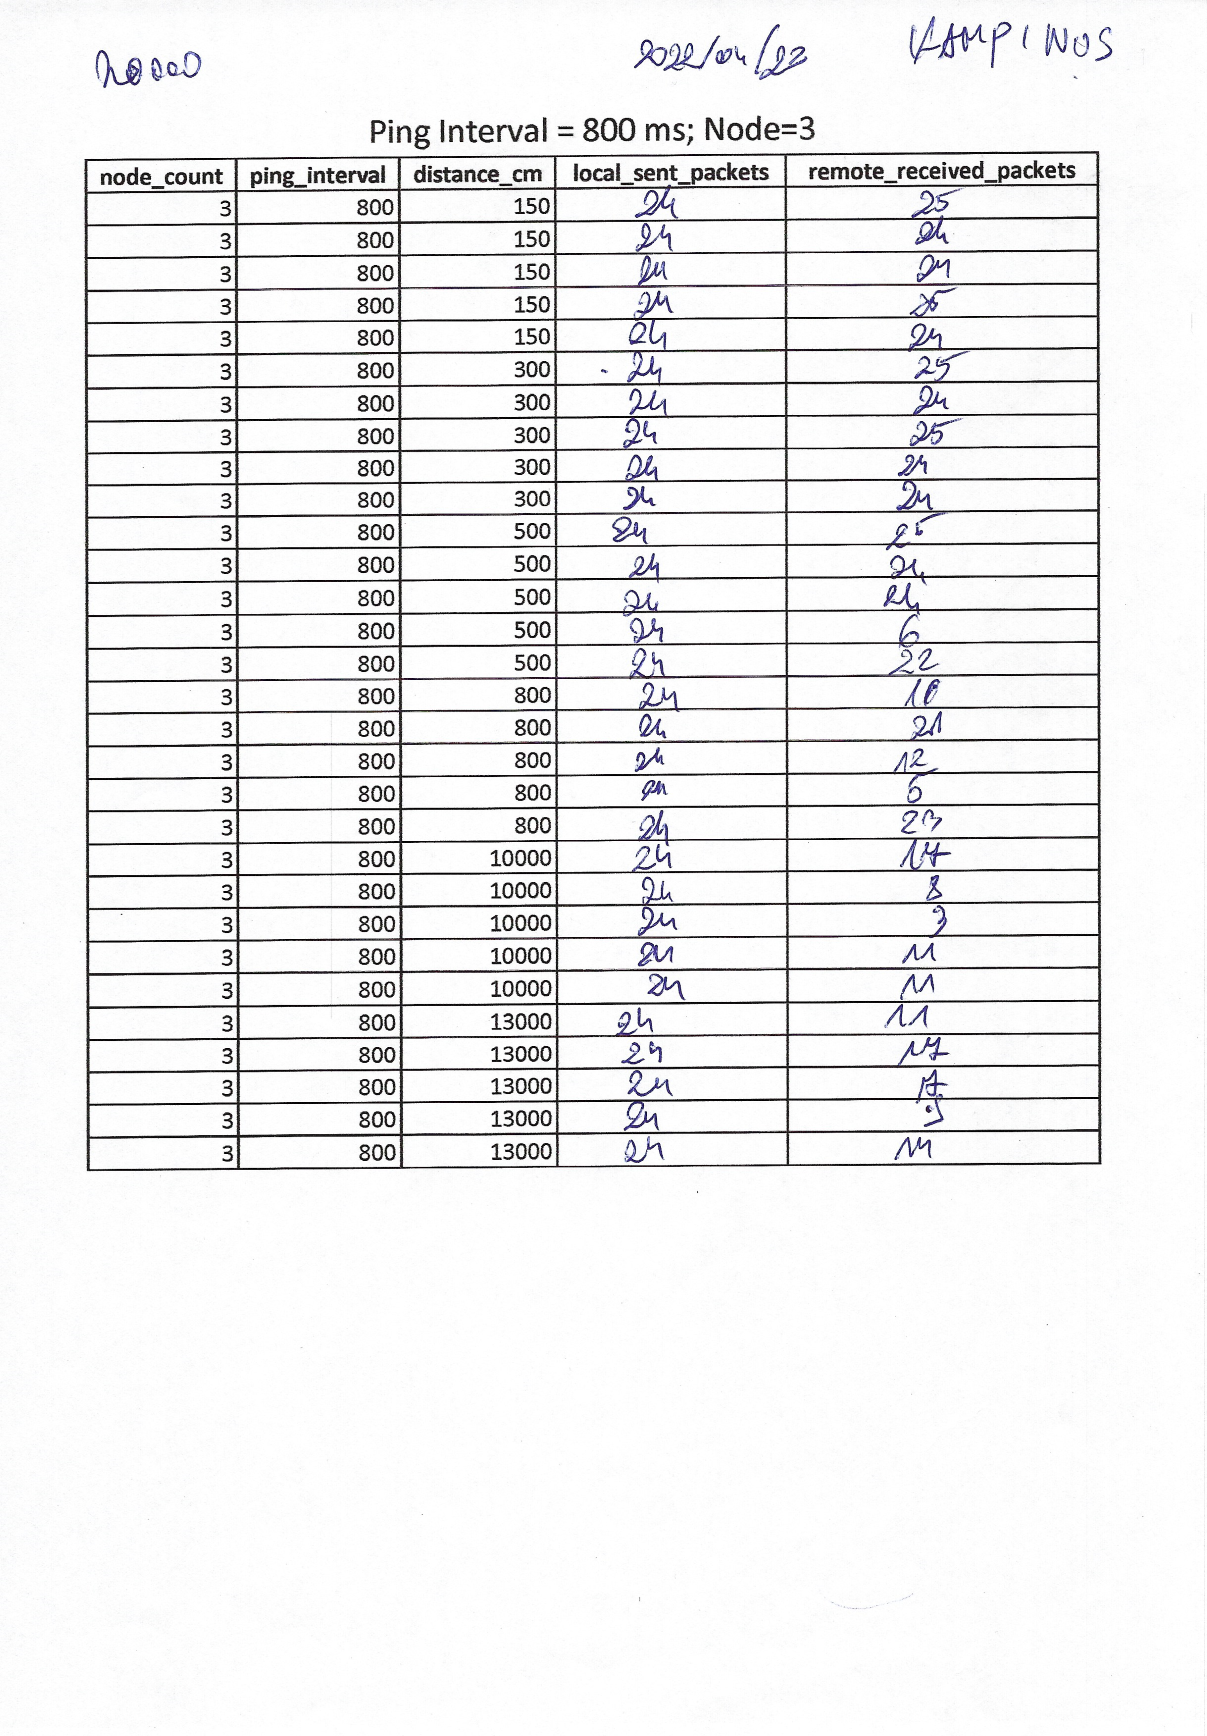 20000
2022/04/23
KAMPINOS
Ping Interval = 800 ms; Node=3
node_count ping_interval distance_cm local_sent_packets remote_received_packets
3 800 150 24 25
3 800 150 24 24
3 800 150 24 24
3 800 150 24 25
3 800 150 24 24
3 800 300 24 25
3 800 300 24 24
3 800 300 24 25
3 800 300 24 24
3 800 300 24 24
3 800 500 24 25
3 800 500 24 24
3 800 500 24 24
3 800 500 24 6
3 800 500 24 22
3 800 800 24 10
3 800 800 24 21
3 800 800 24 12
3 800 800 24 5
3 800 800 24 23
3 800 10000 24 17
3 800 10000 24 8
3 800 10000 24 3
3 800 10000 24 11
3 800 10000 24 11
3 800 13000 24 11
3 800 13000 24 17
3 800 13000 24 17
3 800 13000 24
3 800 13000 24 14